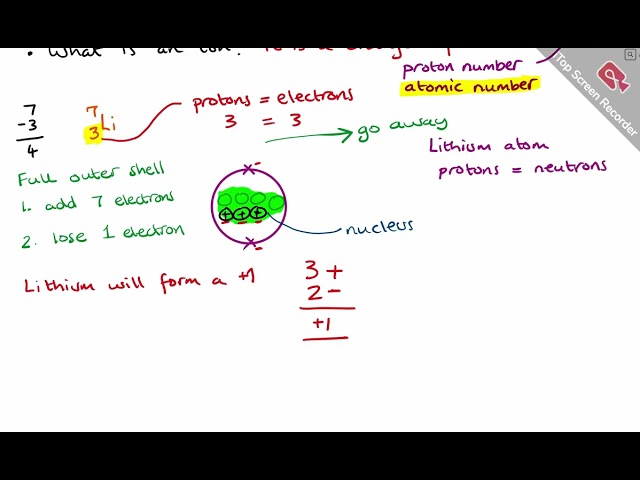 • What is an ion?
proton number
atomic number
7
-3
4
7
3 Li
protons = electrons
3 = 3
go away
Lithium atom
protons = neutrons
Full outer shell
1. add 7 electrons
2. lose 1 electron
nucleus
Lithium will form a +1
3 +
2 -
+1
Top Screen Recorder